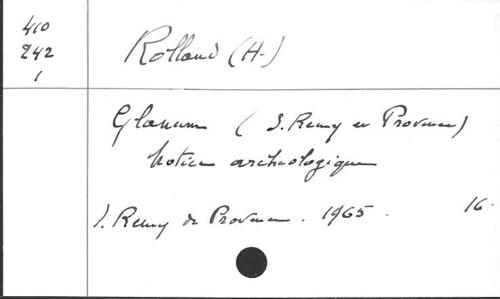 410
242
1
Rolland (H.)
Glanum (S. Remy en Provence)
Notice archeologique
S. Remy de Provence. 1965. 16.